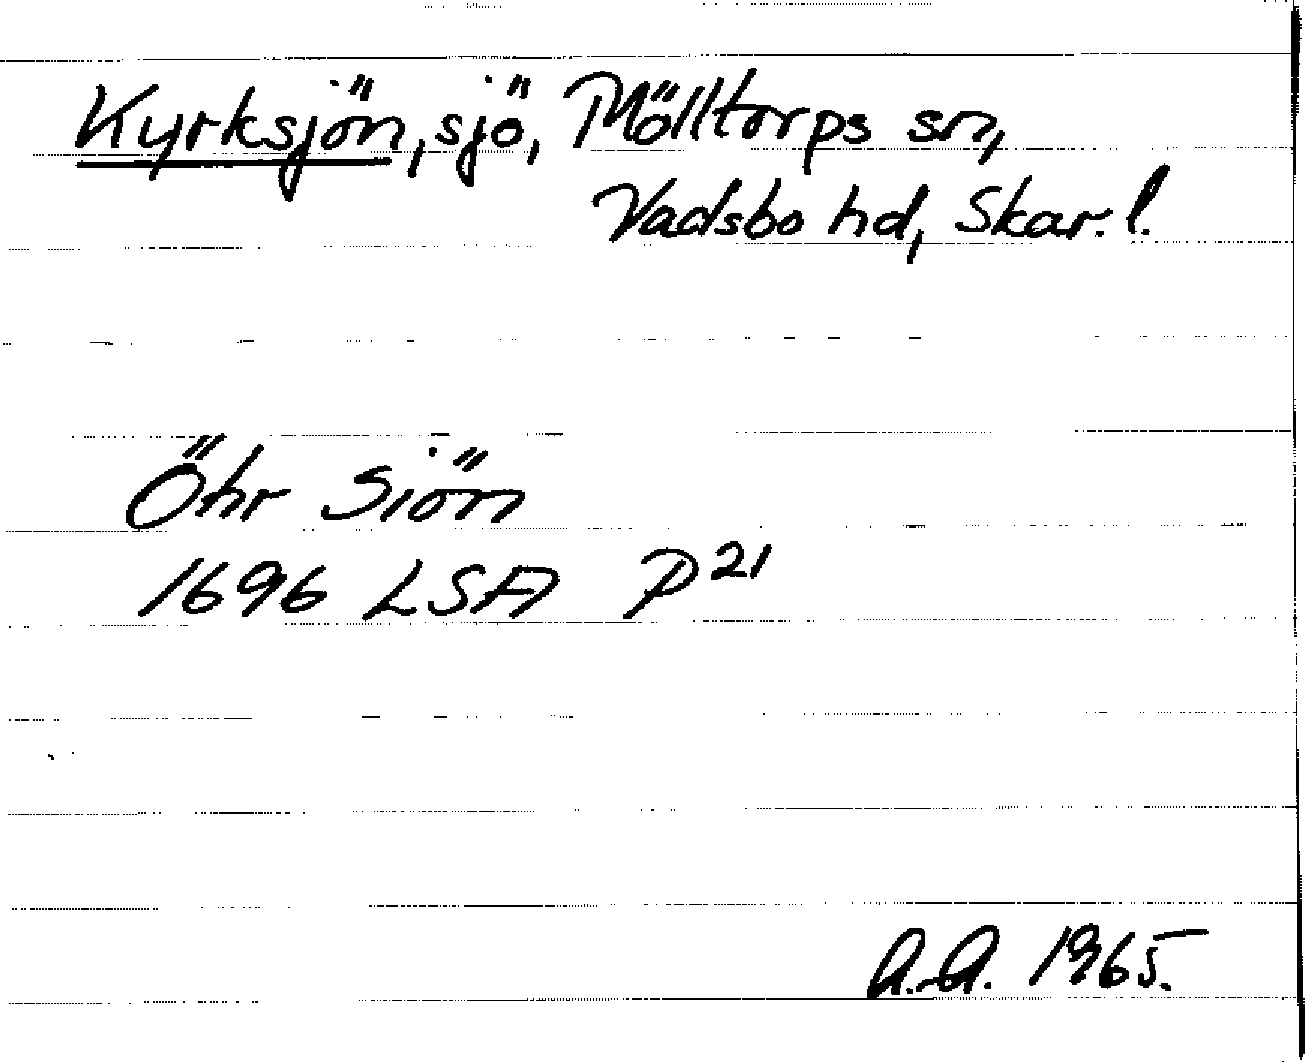 Kyrksjön, sjö, Mölltorps sn,
Vadsbo hd, Skar. l.
Öhr Siön
1696 LSA P21
A.A. 1965.